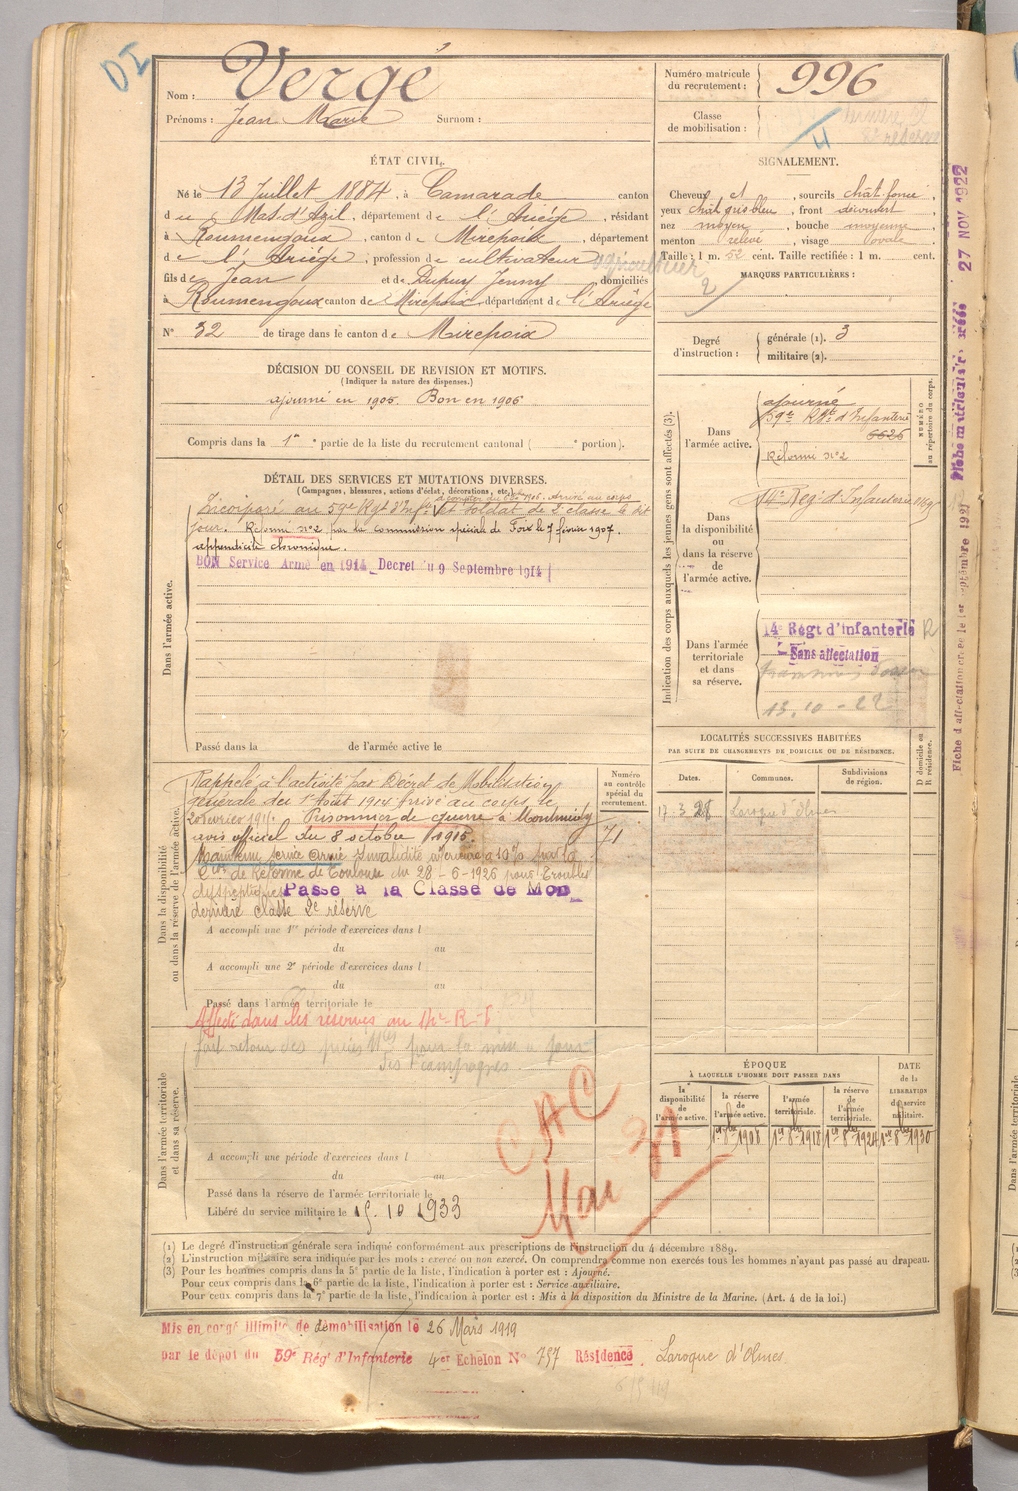 DI
Nom : Vergé
Prénoms : Jean Marie Surnom :
Numéro matricule
du recrutement : 996
Classe
de mobilisation :
4
ÉTAT CIVIL.
Né le 13 Juillet 1884, à Camarade canton
du Mas-d'Azil, département de l'Ariège, résidant
à Roumengoux, canton de Mirepoix, département
de l'Ariège, profession de cultivateur
fils de Jean et de Dupuy Jenny domiciliés
à Roumengoux canton de Mirepoix, département de l'Ariège
N° 32 de tirage dans le canton de Mirepoix
SIGNALEMENT.
Cheveux et, sourcils chât. foncé,
yeux chât gris bleu, front découvert,
nez moyen, bouche moyenne,
menton relevé, visage ovale
Taille : 1 m. 52 cent. Taille rectifiée : 1 m. cent.
MARQUES PARTICULIÈRES :
2
Degré
d'instruction :
générale (1). 3
militaire (2).
DÉCISION DU CONSEIL DE REVISION ET MOTIFS.
(Indiquer la nature des dispenses.)
ajourné en 1905. Bon en 1906
Compris dans la 1re partie de la liste du recrutement cantonal ( portion).
DÉTAIL DES SERVICES ET MUTATIONS DIVERSES.
(Campagnes, blessures, actions d'éclat, décorations, etc.)
1906. Arrivé au corps
Incorporé au 59e Rgt d'Infie et soldat de 2e classe le dit
jour. Réformé n°2 par la commission spéciale de Foix le 7 février 1907.
appendicite chronique.
BON Service Armé en 1914 Decret du 9 Septembre 1914
Dans l'armée active.
Passé dans la de l'armée active le
Indication des corps auxquels les jeunes gens sont affectés (3).
Dans
l'armée active.
ajourné
59e Rgt d'Infanterie
6626
Réformé n°2
NUMÉRO
au répertoire du corps.
Dans
la disponibilité
ou
dans la réserve
de
l'armée active.
14e Reg. d'Infanterie
Dans l'armée
territoriale
et dans
sa réserve.
14e Régt d'Infanterie R
Sans affectation
13.10-22
27 NOV 1922
LOCALITÉS SUCCESSIVES HABITÉES
PAR SUITE DE CHANGEMENTS DE DOMICILE OU DE RÉSIDENCE.
Dates. Communes. Subdivisions
de région.
D domicile ou
R résidence.
17-3 28 Laroque d'Olmes
Dans la disponibilité
ou dans la réserve de l'armée active.
Rappelé à l'activité par Décret de Mobilisation
générale du 1er Août 1914 Arrivé au corps le
Prisonnier de guerre à
avis officiel du 8 octobre 1915.
Maintenu service armé invalidité inférieure à 10% par la
Con de Réforme de Toulouse du 28-6-1926 pour troubles
dyspeptiques Passé à la Classe de Mob
dernière classe 2e réserve
Numéro
au contrôle
spécial du
recrutement.
71
A accompli une 1re période d'exercices dans l
du au
A accompli une 2e période d'exercices dans l
du au
Passé dans l'armée territoriale le
Affecté dans les réserves au
Dans l'armée territoriale
et dans sa réserve.
des campagnes
CAC
Mai 21
A accompli une période d'exercices dans l
du au
Passé dans la réserve de l'armée territoriale le
Libéré du service militaire le 15.10 1933
ÉPOQUE
À LAQUELLE L'HOMME DOIT PASSER DANS
la
disponibilité
de
l'armée active.
la réserve
de
l'armée active.
l'armée
territoriale.
la réserve
de
l'armée
territoriale.
DATE
de la
LIBÉRATION
du service
militaire.
1er 8bre 1908 1er 8bre 1918 1er 8bre 1924 1er 8bre 1930
(1) Le degré d'instruction générale sera indiqué conformément aux prescriptions de l'instruction du 4 décembre 1889.
(2) L'instruction militaire sera indiquée par les mots : exercé ou non exercé. On comprendra comme non exercés tous les hommes n'ayant pas passé au drapeau.
(3) Pour les hommes compris dans la 5e partie de la liste, l'indication à porter est : Ajourné.
Pour ceux compris dans la 6e partie de la liste, l'indication à porter est : Service auxiliaire.
Pour ceux compris dans la 7e partie de la liste, l'indication à porter est : Mis à la disposition du Ministre de la Marine. (Art. 4 de la loi.)
Mis en congé illimité de démobilisation le 26 Mars 1919
par le dépôt du 59e Rég. d'Infanterie 4er Echelon N° 757 Résidence Laroque d'Olmes